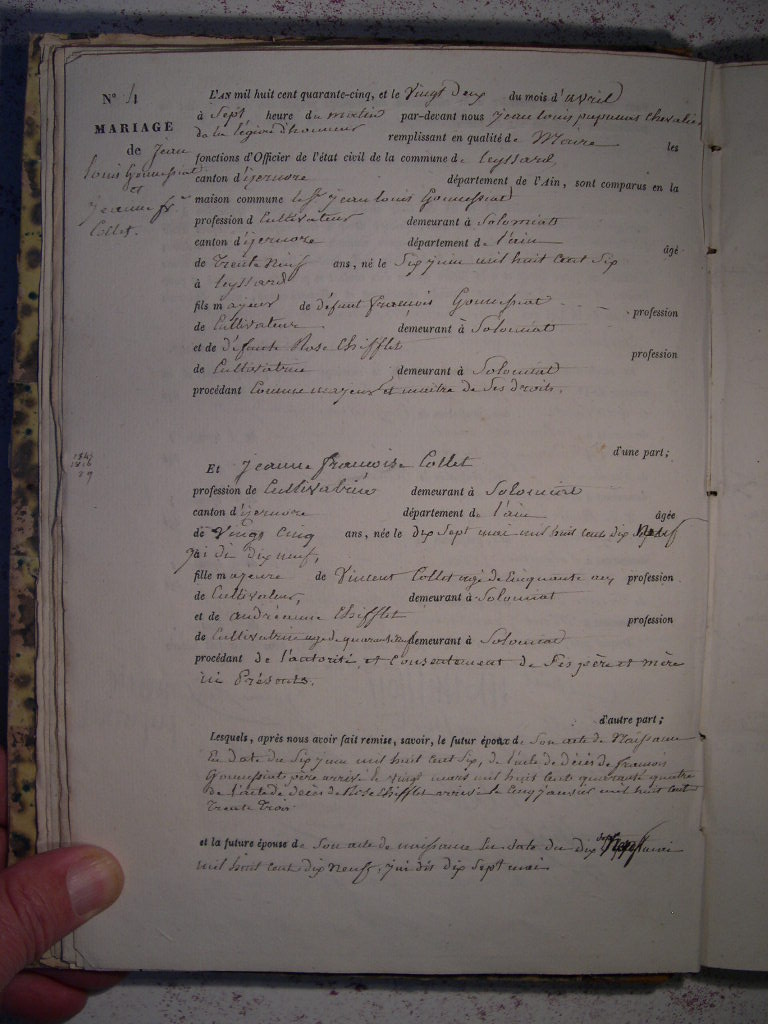 N° 4
MARIAGE
de Jean
louis Gonnessiat
et
jeanne fr.se
Collet.
L'AN mil huit cent quarante-cinq, et le vingt deux du mois d'avril
à Sept heure du matin par-devant nous jean louis chevalier
de la légion d'honneur remplissant en qualité de Maire les
fonctions d'Officier de l'état civil de la commune de leyssard,
canton d'izernore département de l'Ain, sont comparus en la
maison commune le Sr jean louis Gonnessiat
profession d Cultivateur demeurant à Solomiat
canton d'izernore département de l'ain
âgé
de Trente Neuf ans, né le Six juin mil huit cent Six
à leyssard
fils majeur de défunt françois Gonnessiat profession
de Cultivateur demeurant à Solomiat
et de défunte Rose Chifflet profession
de Cultivatrice demeurant à Solomiat
procédant Comme majeur et maitre de Ses droits.
d'une part;
1845
1816
29
Et jeanne françoise Collet
profession de Cultivatrice demeurant à Solomiat
canton d'izernore département de l'ain âgée
de Vingt Cinq ans, née le dix Sept mai mil huit cent dix Neuf
à j'ai di dix neuf,
fille majeure de Vincent Collet agé de Cinquante ans profession
de Cultivateur, demeurant à Solomiat
et de andréanne Chifflet profession
de Cultivatrice agée de quarante demeurant à Solomiat
procédant de l'autorité et Consentement de Ses père et mère
ici Présents.
d'autre part;
Lesquels, après nous avoir fait remise, savoir, le futur époux de Son acte de Naissance
En date du Six juin mil huit cent Six, de l'acte de décès de françois
Gonnessiat père arrivé le vingt mars mil huit cent quarante quatre
de l'acte de décès de Rose Chifflet arrivé le Cinq janvier mil huit cent
Trente Trois
et la future épouse de Son acte de naissance En date du dix Sept mai
mil huit cent dix Neuf, j'ai dis dix Sept mai